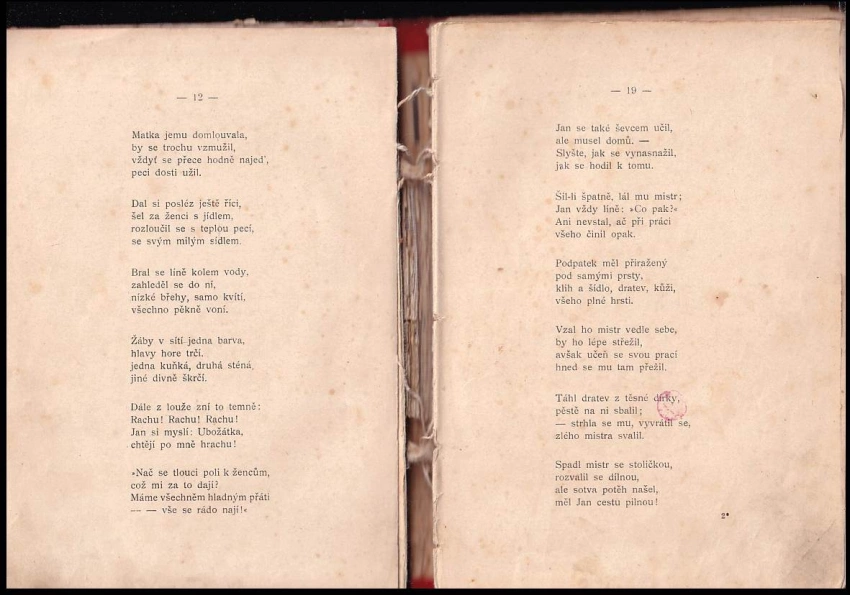 — 12 —
Matka jemu domlouvala,
by se trochu vzmužil,
vždyť se přece hodně najed',
peci dosti užil.
Dal si posléz ještě říci,
šel za ženci s jídlem,
rozloučil se s teplou pecí,
se svým milým sídlem.
Bral se líně kolem vody,
zahleděl se do ní,
nízké břehy, samo kvítí,
všechno pěkně voní.
Žáby v sítí jedna barva,
hlavy hore trčí.
jedna kuňká, druhá sténá,
jiné divně škrčí.
Dále z louže zní to temně:
Rachu! Rachu! Rachu!
Jan si myslí: Ubožátka,
chtějí po mně hrachu!
»Nač se tlouci polí k žencům,
což mi za to dají?
Máme všechněm hladným přáti
— — vše se rádo nají!«
— 19 —
Jan se také ševcem učil,
ale musel domů. —
Slyšte, jak se vynasnažil,
jak se hodil k tomu.
Šil-li špatně, lál mu mistr;
Jan vždy líně: »Co pak?«
Ani nevstal, ač při práci
všeho činil opak.
Podpatek měl přiražený
pod samými prsty,
klih a šídlo, dratev, kůži,
všeho plné hrsti.
Vzal ho mistr vedle sebe,
by ho lépe střežil,
avšak učeň se svou prací
hned se mu tam přežil.
Táhl dratev z těsné dírky,
pěstě na ni sbalil;
— strhla se mu, vyvrátil se,
zlého mistra svalil.
Spadl mistr se stoličkou,
rozvalil se dílnou,
ale sotva potěh našel,
měl Jan cestu pilnou!
2*